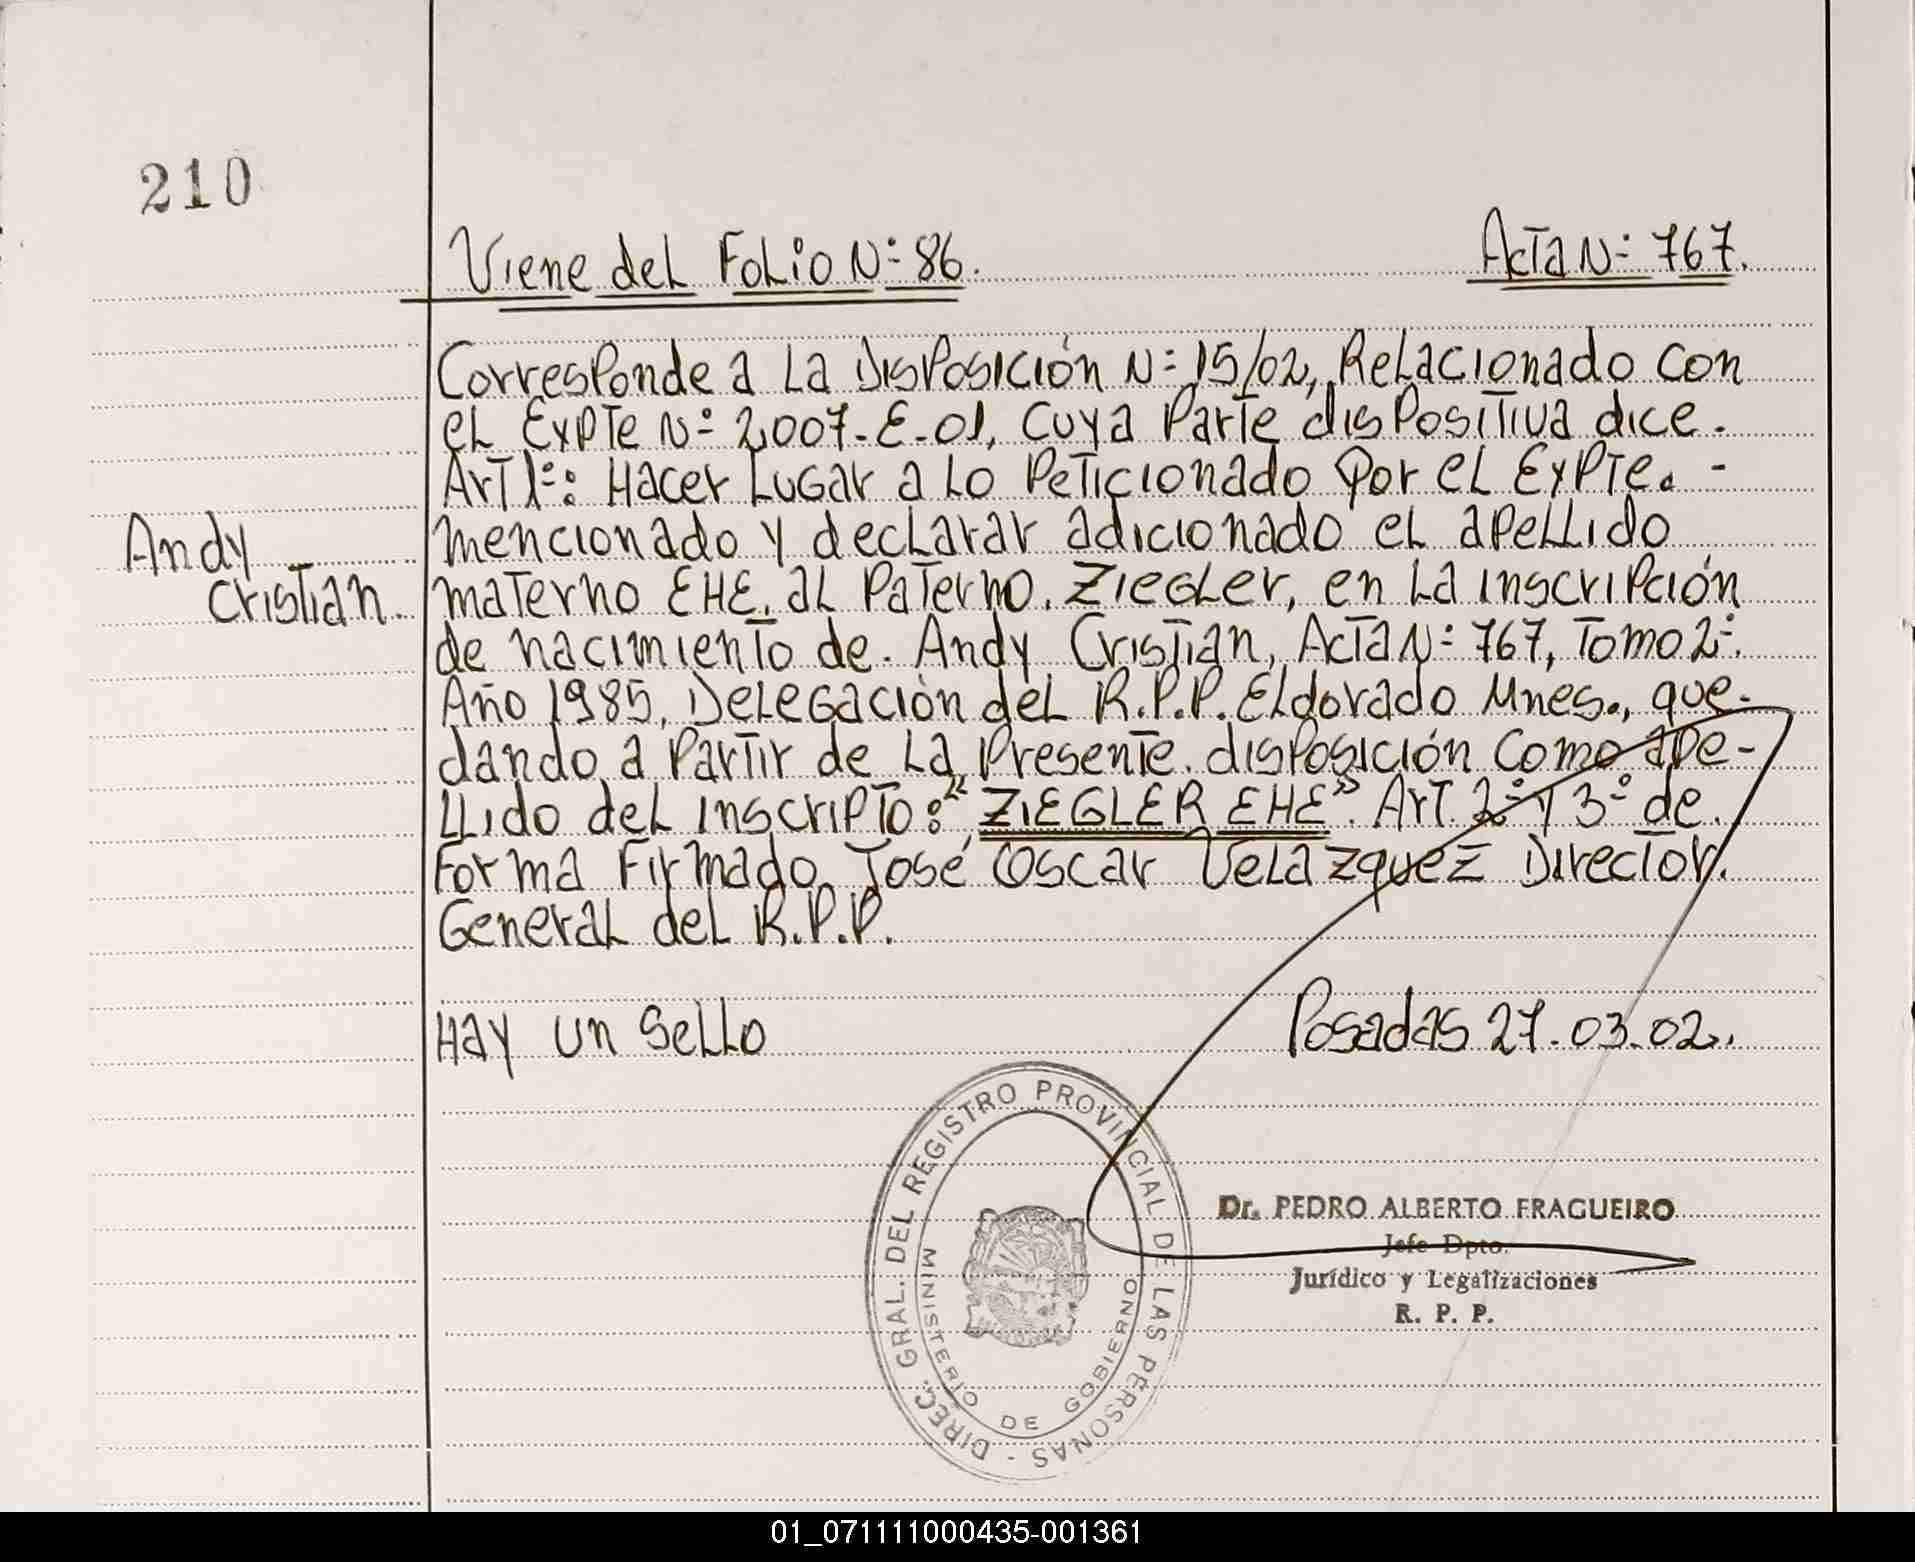 210
Viene del Folio Nº 86.
Acta Nº 767.
Corresponde a la Disposición Nº 15/02, Relacionado con
el Expte Nº 2007-E-01, cuya Parte disPositiva dice.
Art 1º: Hacer lugar a lo Peticionado Por el ExPte. -
Andy
mencionado y declarar adicionado el apellido
Cristian.
materno EHE, al Paterno. Ziegler, en la inscriPción
de nacimiento de. Andy Cristian, Acta Nº 767, Tomo 2º.
Año 1985, Delegación del R.P.P. Eldorado Mnes., que-
dando a Partir de la Presente. disPosición como ape-
llido del inscripto: "ZIEGLER EHE". Art. 2º y 3º de.
Forma Firmado José Oscar Velázquez Director.
General del R.P.P.
Hay un Sello
Posadas 27.03.02.
DIREC. GRAL. DEL REGISTRO PROVINCIAL DE LAS PERSONAS -
MINISTERIO DE GOBIERNO
Dr. PEDRO ALBERTO FRAGUEIRO
Jefe Dpto.
Jurídico y Legalizaciones
R. P. P.
01_071111000435-001361